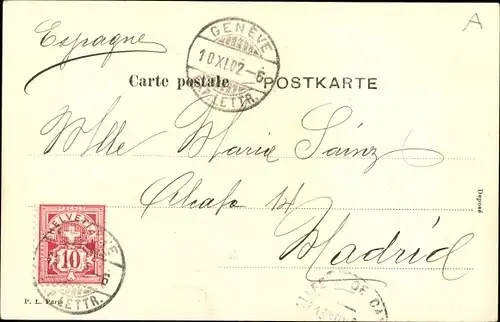 A
Espagne
GENÈVE
10 XI.02-6
EXP. LETTR.
Carte postale POSTKARTE
Mlle Marie Sainz
14
Madrid
Déposé
HELVETIA
10
LETTR.
P. L. Paris
DE